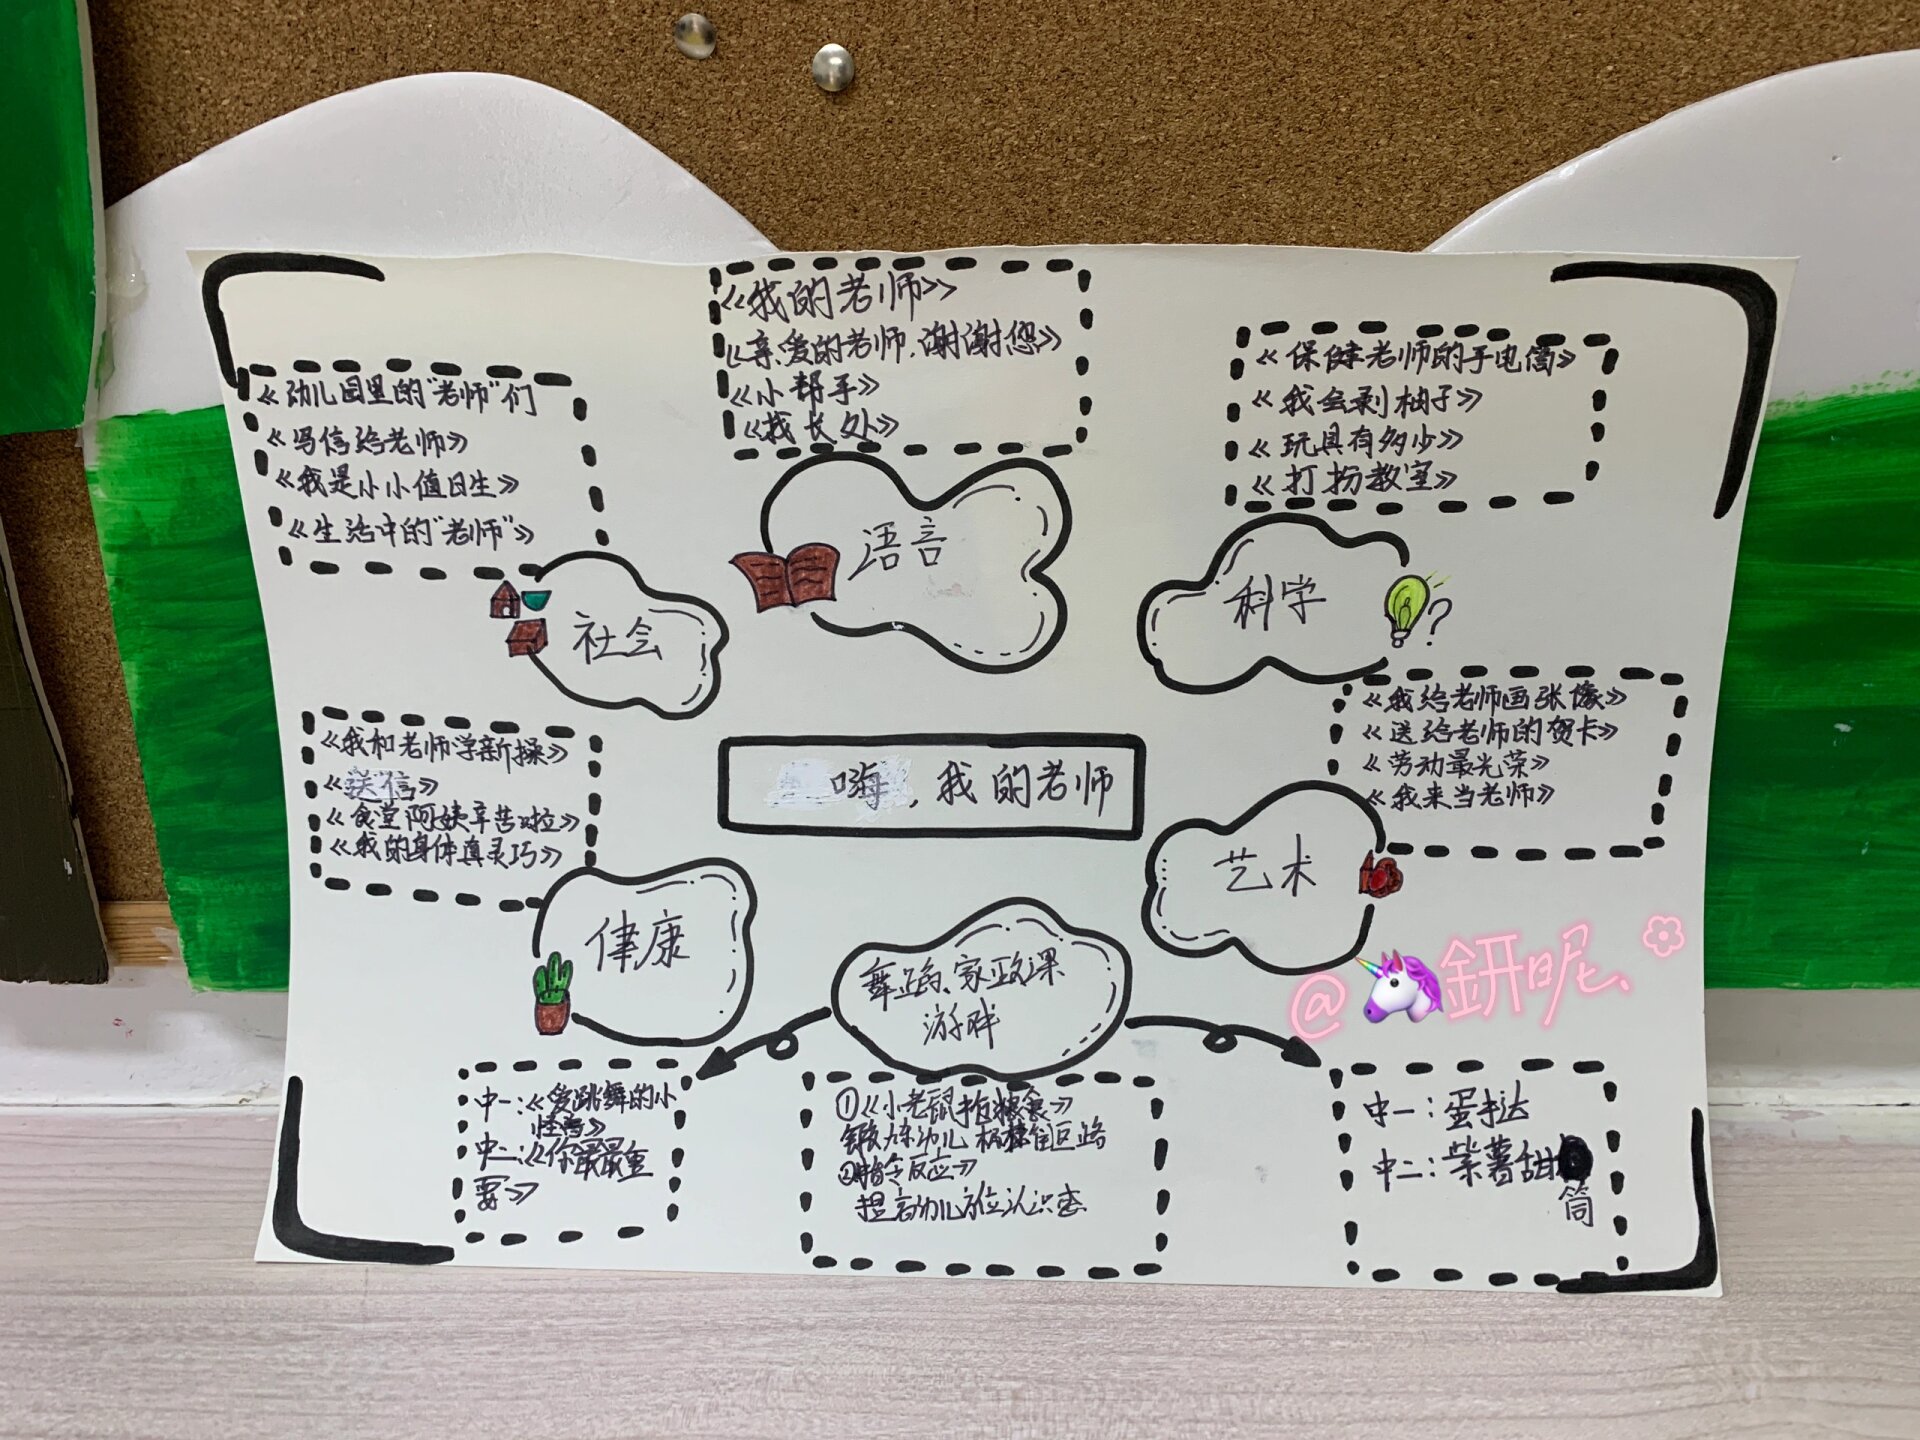 《我的老师》
《亲爱的老师，谢谢您》
《小帮手》
《找长处》
语言
《幼儿园里的"老师"们
《写信给老师》
《我是小小值日生》
《生活中的"老师"》
社会
《保健老师的手电筒》
《我会剥柚子》
《玩具有多少》
《打扮教室》
科学
?
《我和老师学新操》
《送信》
《食堂阿姨辛苦啦》
《我的身体真灵巧》
健康
嗨，我的老师
《我给老师画张像》
《送给老师的贺卡》
《劳动最光荣》
《我来当老师》
艺术
舞蹈、家政课
游戏
@🦄鈃呢、
中一：《爱跳舞的小
怪兽》
中二：《你最最重
要》
①《小老鼠抢粮食》
锻炼幼儿
②指令反应》
提高幼儿方位认识态
中一：蛋挞
中二：紫薯甜
筒